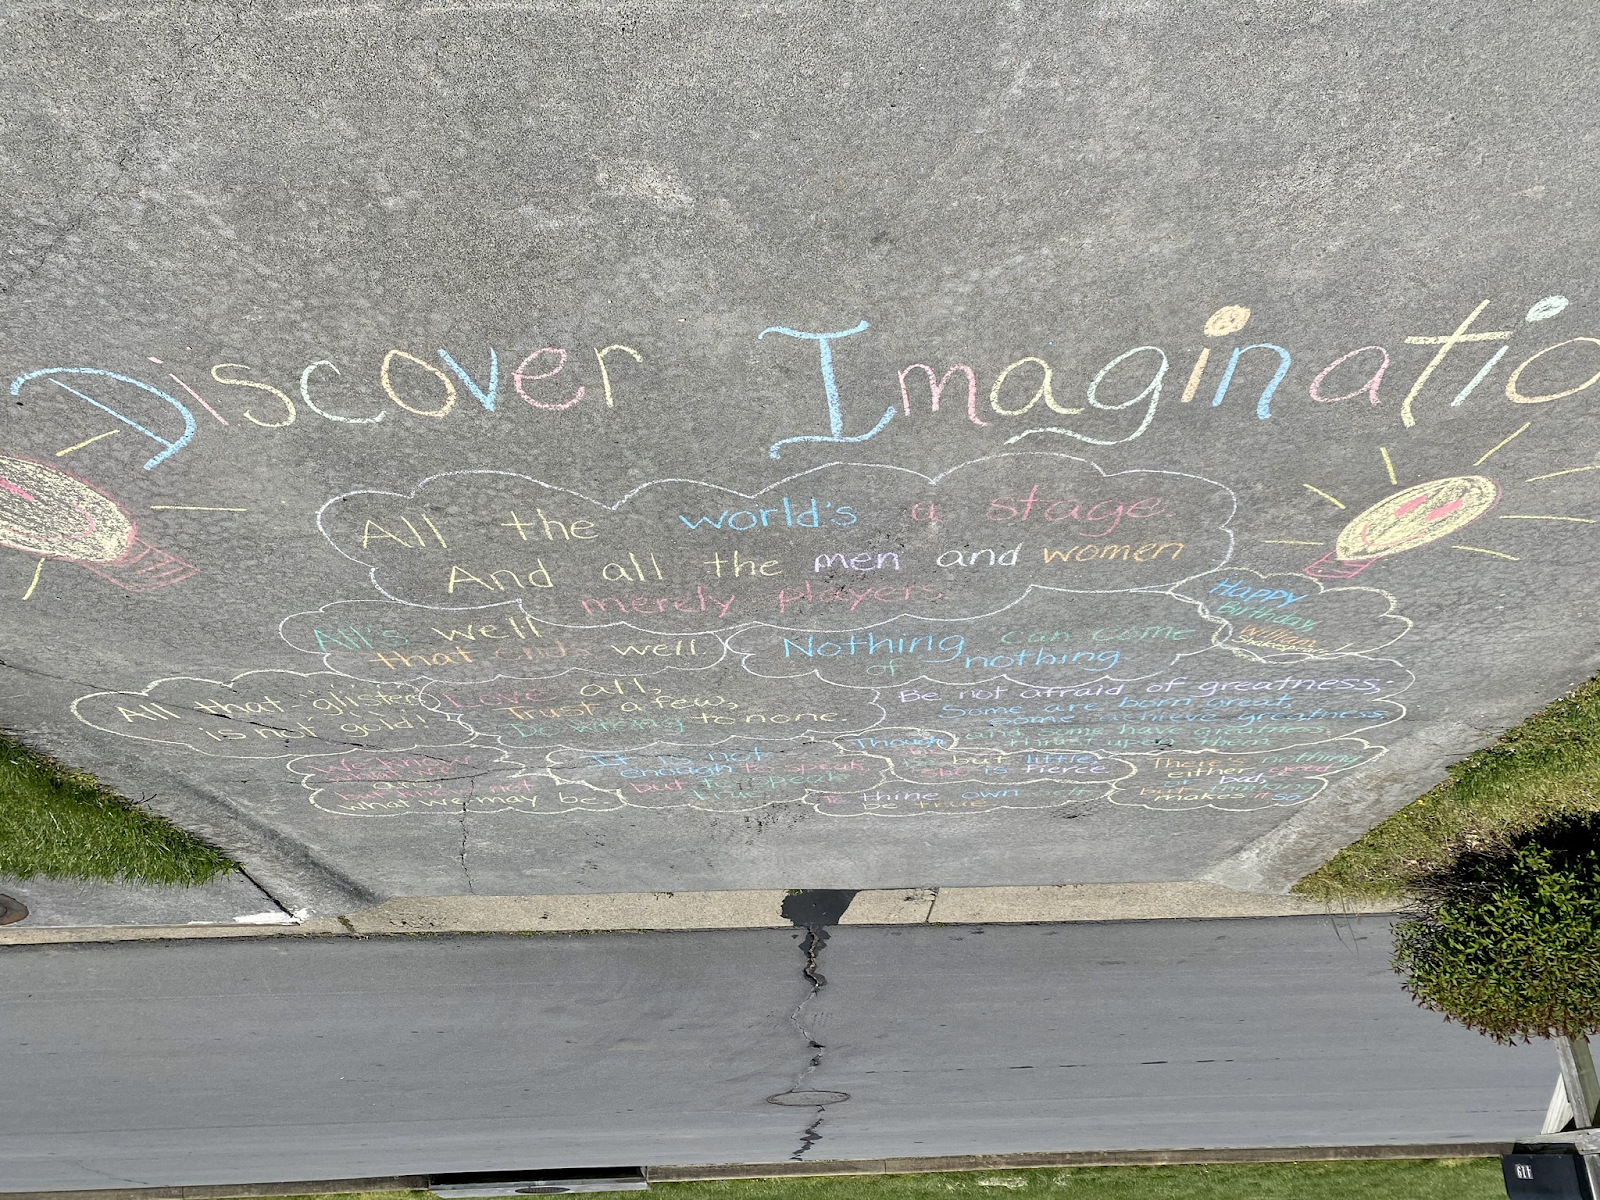 Discover Imaginatio
All the world's a stage.
And all the men and women
merely players.
Happy
Birthday,
William
Shakespeare!
All's well
that ends well.
Nothing can come
of nothing.
All that glisters
is not gold!
Love all,
Trust a few,
Do wrong to none.
Be not afraid of greatness;
Some are born great,
some achieve greatness,
and some have greatness
thrust upon them
We know
what we
are,
but not
what we may be.
It is not
enough to speak,
but to speak
true
Though she
be but little,
she is fierce
To thine own self
be true
There's nothing
either good
or bad,
but thinking
makes it so